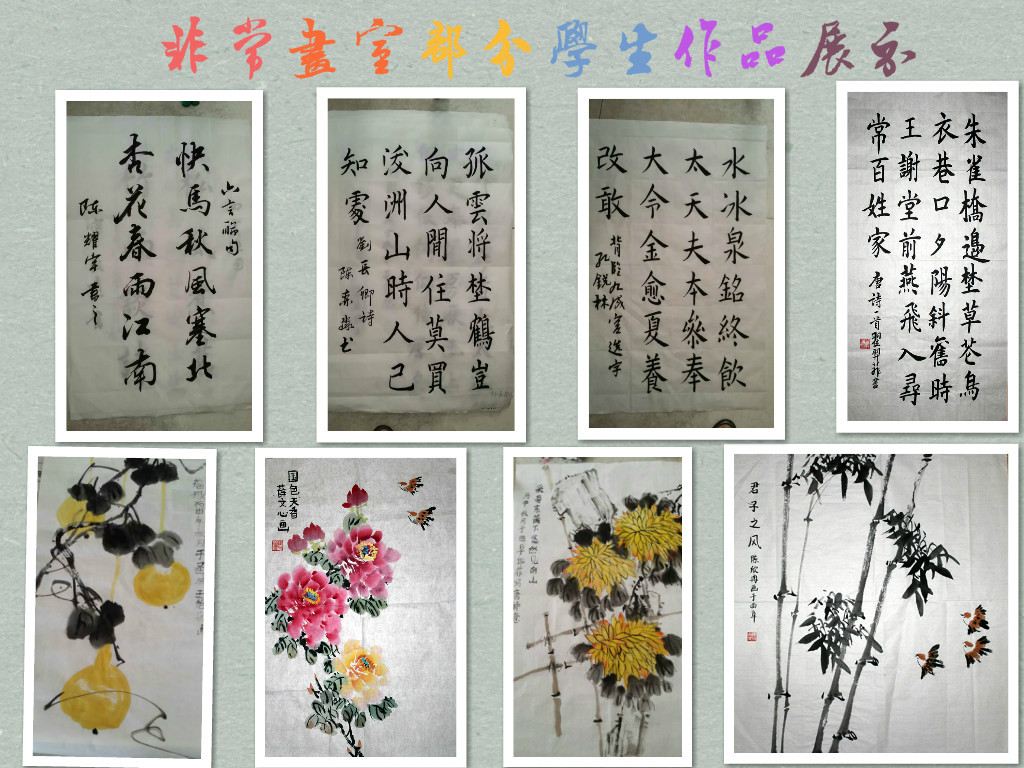 非常畫室部分學生作品展示
六言聯句
快馬秋風塞北
杏花春雨江南
陈耀宇書之
孤雲将埜鶴豈
向人間住莫買
洲山時人已
知處
劉長卿詩
水冰泉銘終飲
太天夫本泰奉
大令金愈夏養
改敢
背臨九成宫選字
孔鋭林
朱雀橋邊埜草花烏
衣巷口夕陽斜舊時
王謝堂前燕飛入尋
常百姓家
唐詩一首
国色天香
薛文心画
采菊东篱下悠然见南山
君子之风